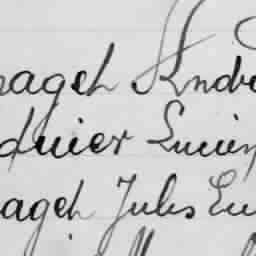 nageh Andr
dnier Lucien
ageh Jules Eu